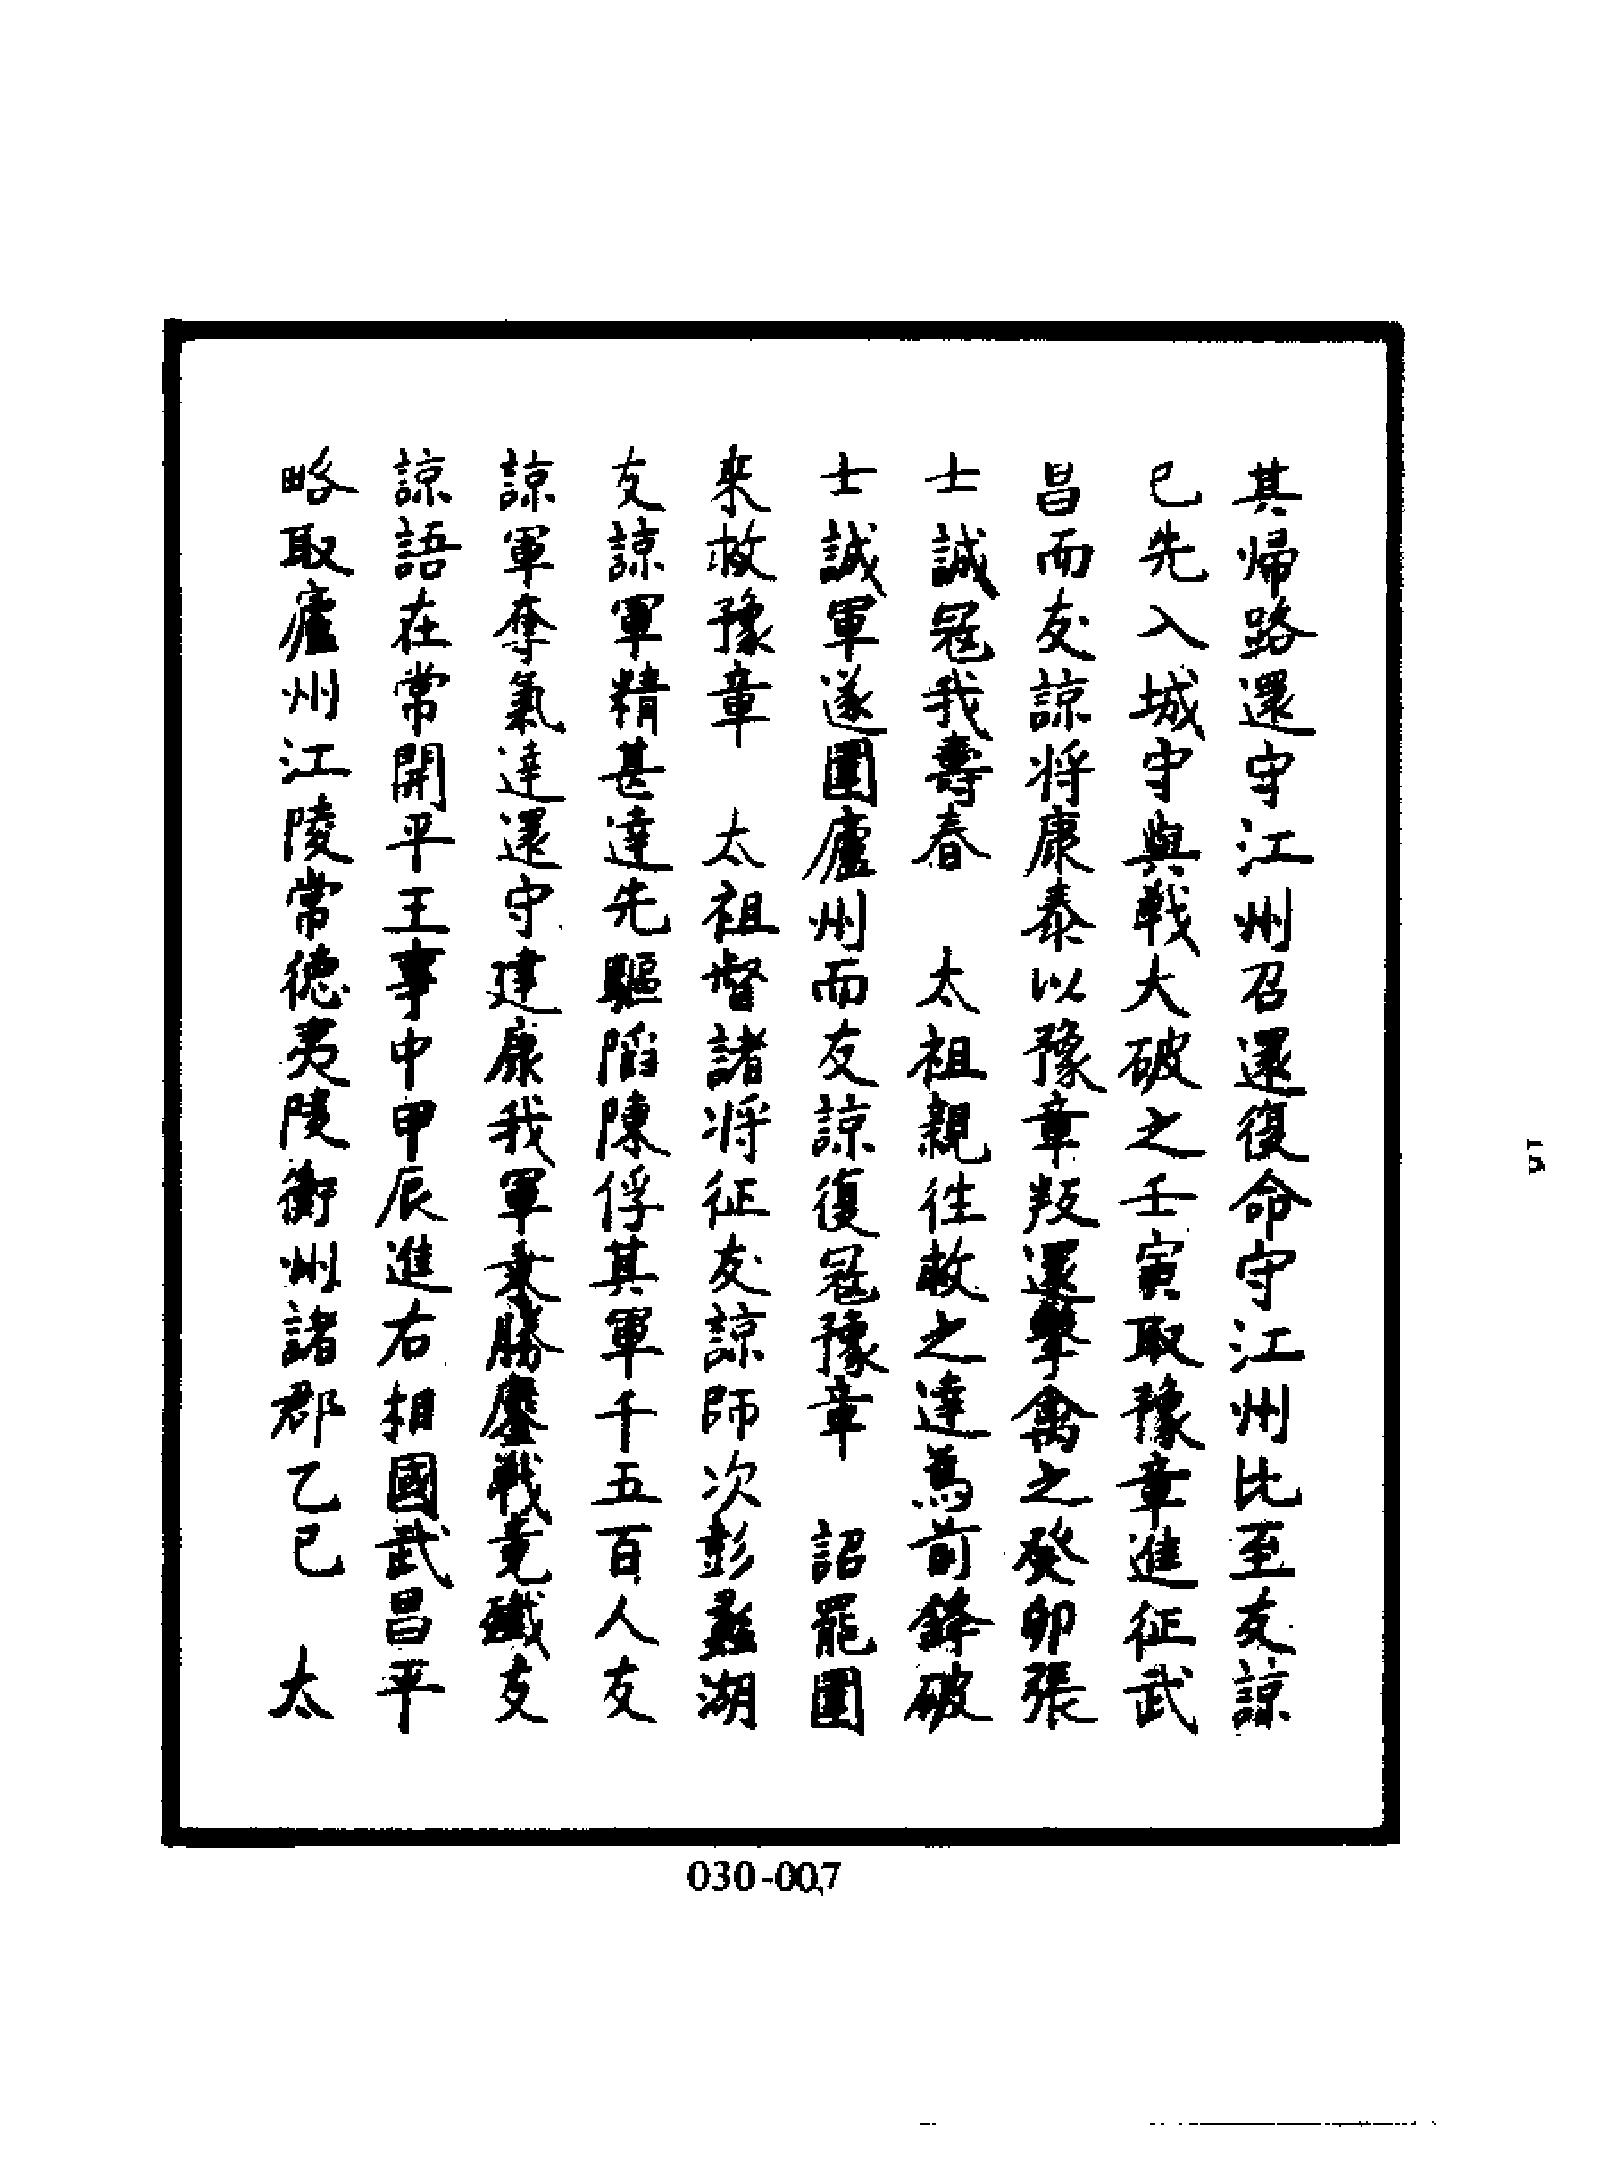 其帰路還守江州召還復命守江州比至友諒
已先入城守與戰大破之壬寅取豫章進征武
昌而友諒将康泰以豫章叛還擊禽之癸卯張
士誠冦我壽春　太祖親往救之達為前鋒破
士誠軍遂圍廬州而友諒復冦豫章　詔罷圍
来救豫章　太祖督諸将征友諒師次彭蠡湖
友諒軍精甚達先驅陷陳俘其軍千五百人友
諒軍奪氣達還守建康我軍乗勝鏖戰竟殱友
諒語在常開平王事中甲辰進右相國武昌平
略取廬州江陵常德夷陵衡州諸郡乙巳　太
030-007